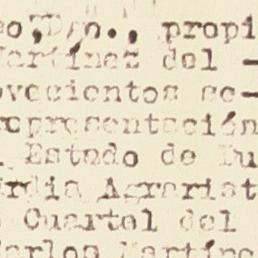 eo, Dgo., propi
Martínez del -
ovecientos se-
representación
Estado de Du
rdia Agrarist
Cuartel del
Carlos Martíne